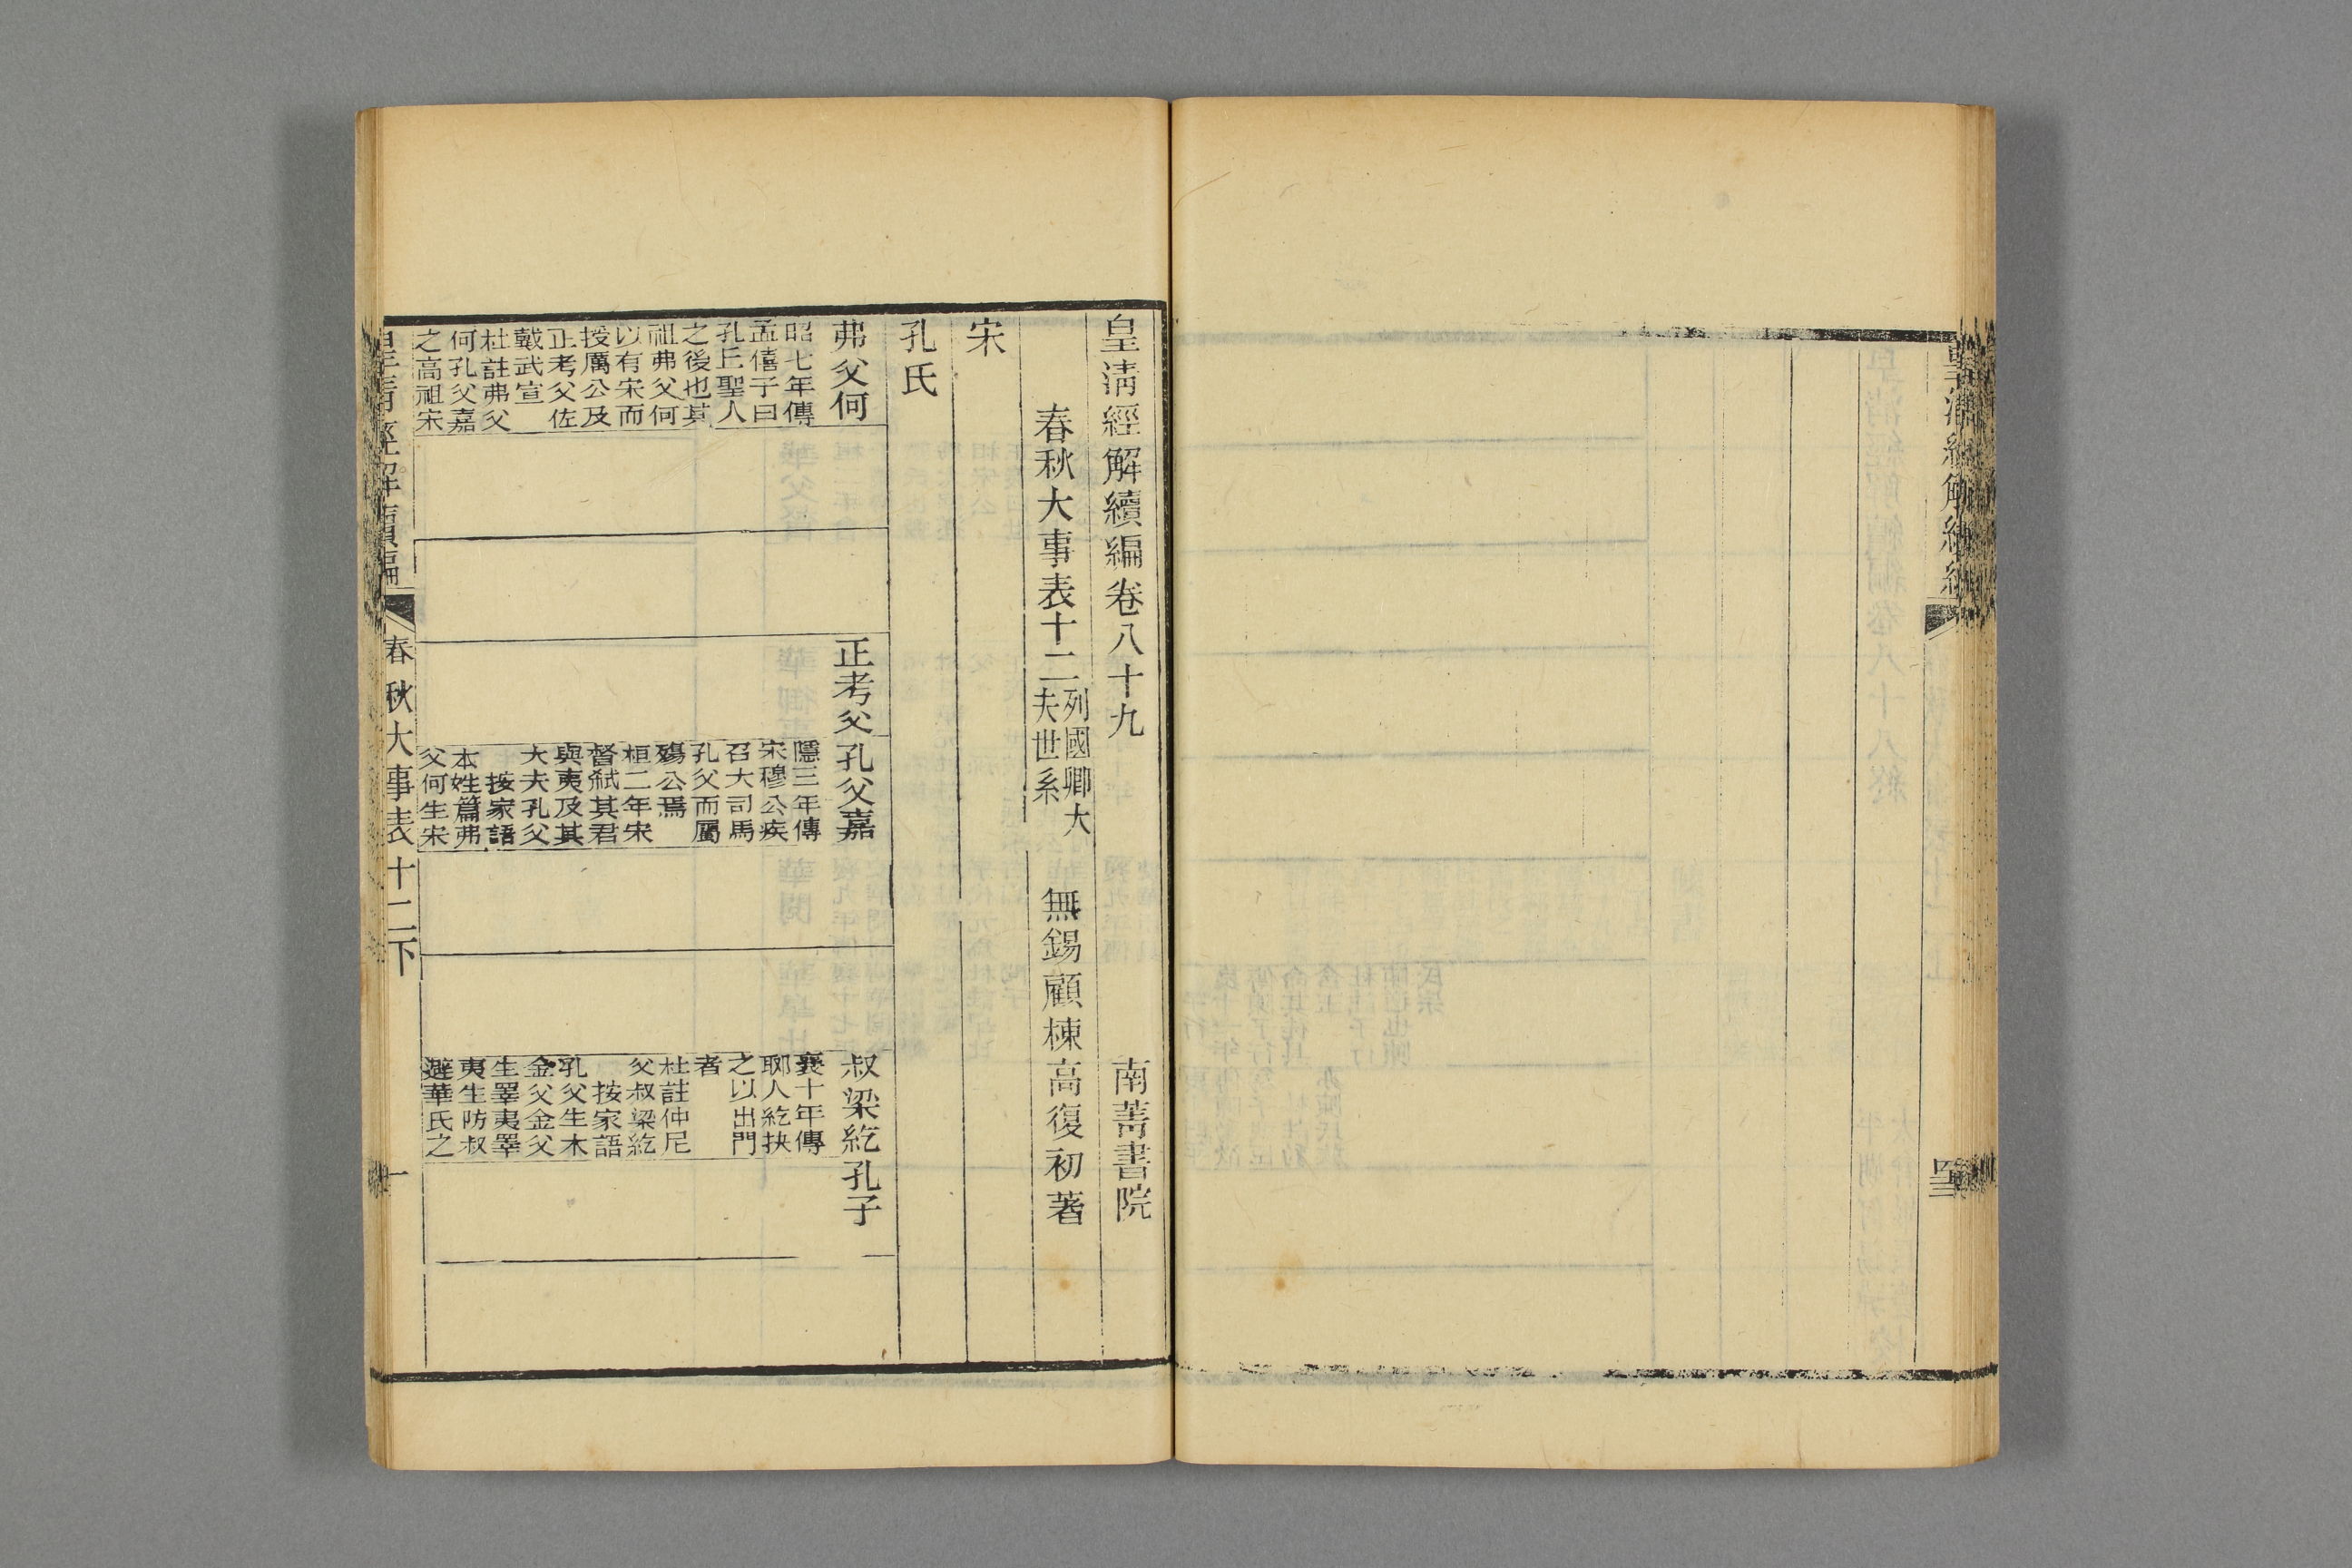 皇清經解續編
皇清經解續編卷八十九
南菁書院
春秋大事表十二
列國卿大
夫世系
無錫顧棟高復初著
宋
孔氏
弗父何
昭七年傳
孟僖子曰
孔丘聖人
之後也其
祖弗父何
以有宋而
授厲公及
正考父佐
戴武宣
杜註弗父
何孔父嘉
之高祖宋
正考父
孔父嘉
隱三年傳
宋穆公疾
召大司馬
孔父而屬
殤公焉
桓二年宋
督弒其君
與夷及其
大夫孔父
按家語
本姓篇弗
父何生宋
叔梁紇
襄十年傳
郰人紇抉
之以出門
者
杜註仲尼
父叔梁紇
按家語
孔父生木
金父金父
生睪夷睪
夷生防叔
避華氏之
孔子
皇清經解續編
春秋大事表十二下
一